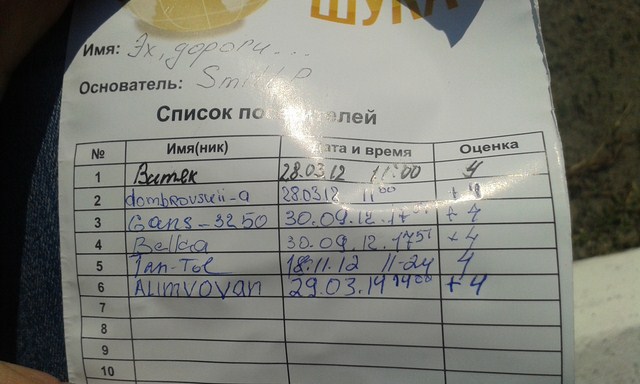 ШУКА
Имя: Эх, дороги...
Основатель:
Список посетителей
№ Имя(ник) Дата и время Оценка
1 Витек 28.03.12 11:00 4
2 dombrovskii-a 28.03.12 11 00 +4
3 Gans-3250 30.09.12. +4
4 Belka 30.09.12. 17 51 +4
5 Tan-Tol 18.11.12 11-24 4
6 ALIMVOVAN 29.03.14 14 00 +4
7
8
9
10